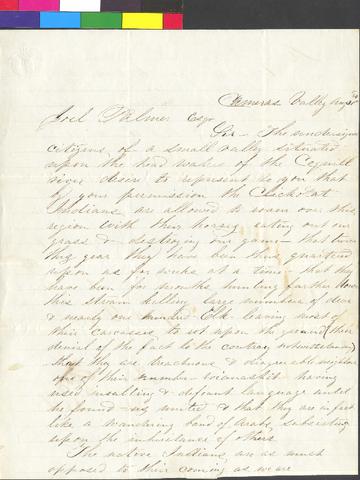 Cameras Valley Aug 20
Joel Palmer Esqr
Sir – The undersigned
citizens of a small vally situated
upon the head waters of the Coquill
river desire to represent to you that
by your permission the Clickotat
Indians are allowed to roam over this
region with their horses eating out our
grass & destroying our game – that twice
this year they have been thus quartered
upon us for weeks at a time – that they
have been for months hunting farther down
this stream killing large numbers of deer
& nearly one hundred Elk leaving most of
their carcasses to rot upon the ground (their
denial of the fact to the contrary notwithstanding)
– that they are treacherous & disagreeable neighbors
one of their number having
used insulting & defiant language until
he found us united & that they are in fact
like a wandering band of Arabs subsisting
upon the inheritance of others
The native Indians are as much
opposed to their coming as we are